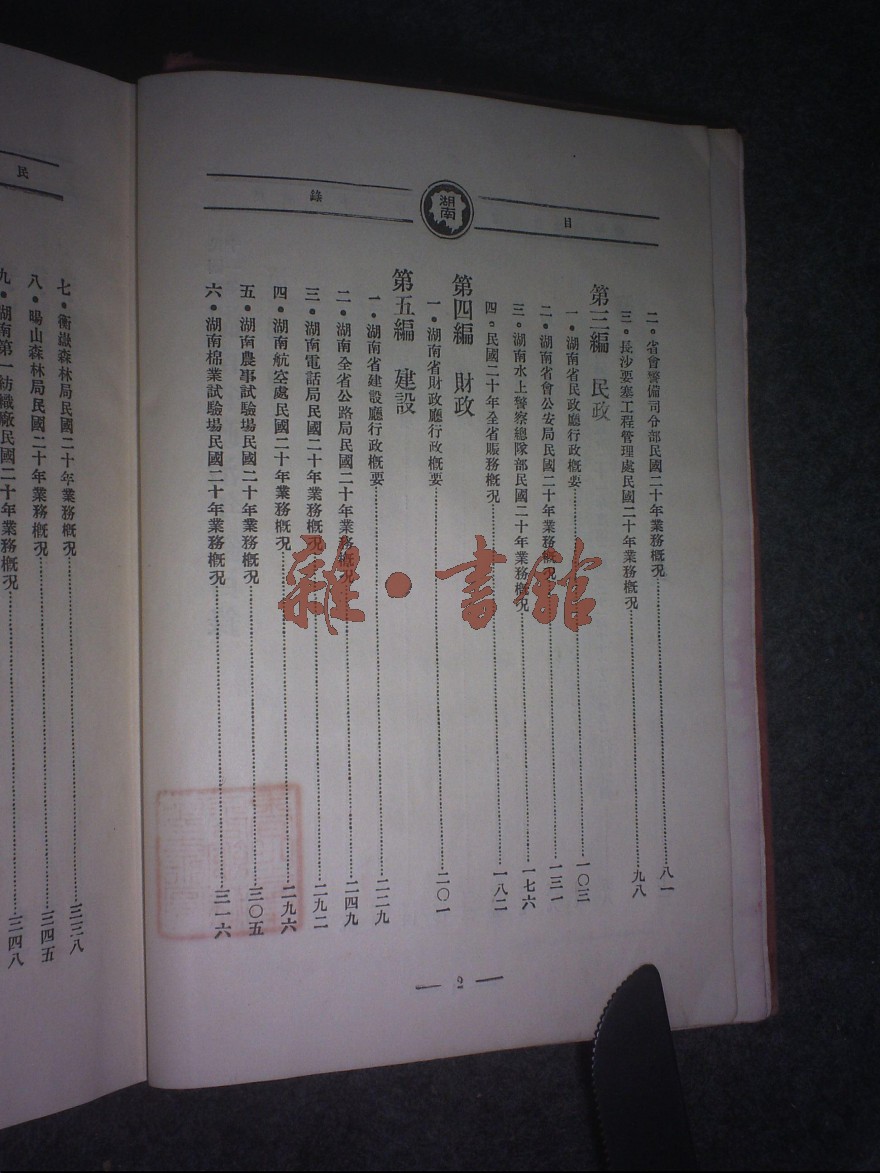 目 湖南 錄
二•省會警備司令部民國二十年業務概況 八一
三•長沙要塞工程管理處民國二十年業務概況 九八
第三編 民政
一•湖南省民政廳行政概要 一〇三
二•湖南省會公安局民國二十年業務概況 一三一
三•湖南水上警察總隊部民國二十年業務概況 一七六
四•民國二十年全省賑務概況 一八二
第四編 財政
一•湖南省財政廳行政概要 二〇一
第五編 建設
一•湖南省建設廳行政概要 二二九
二•湖南全省公路局民國二十年業務概況 二四九
三•湖南電話局民國二十年業務概況 二九二
四•湖南航空處民國二十年業務概況 二九六
五•湖南農事試驗場民國二十年業務概況 三〇五
六•湖南棉業試驗場民國二十年業務概況 三一六
— 2 —
民
七•衡嶽森林局民國二十年業務概況 三三八
八•暘山森林局民國二十年業務概況 三四五
九•湖南第一紡織廠民國二十年業務概況 三四八
雜•書館